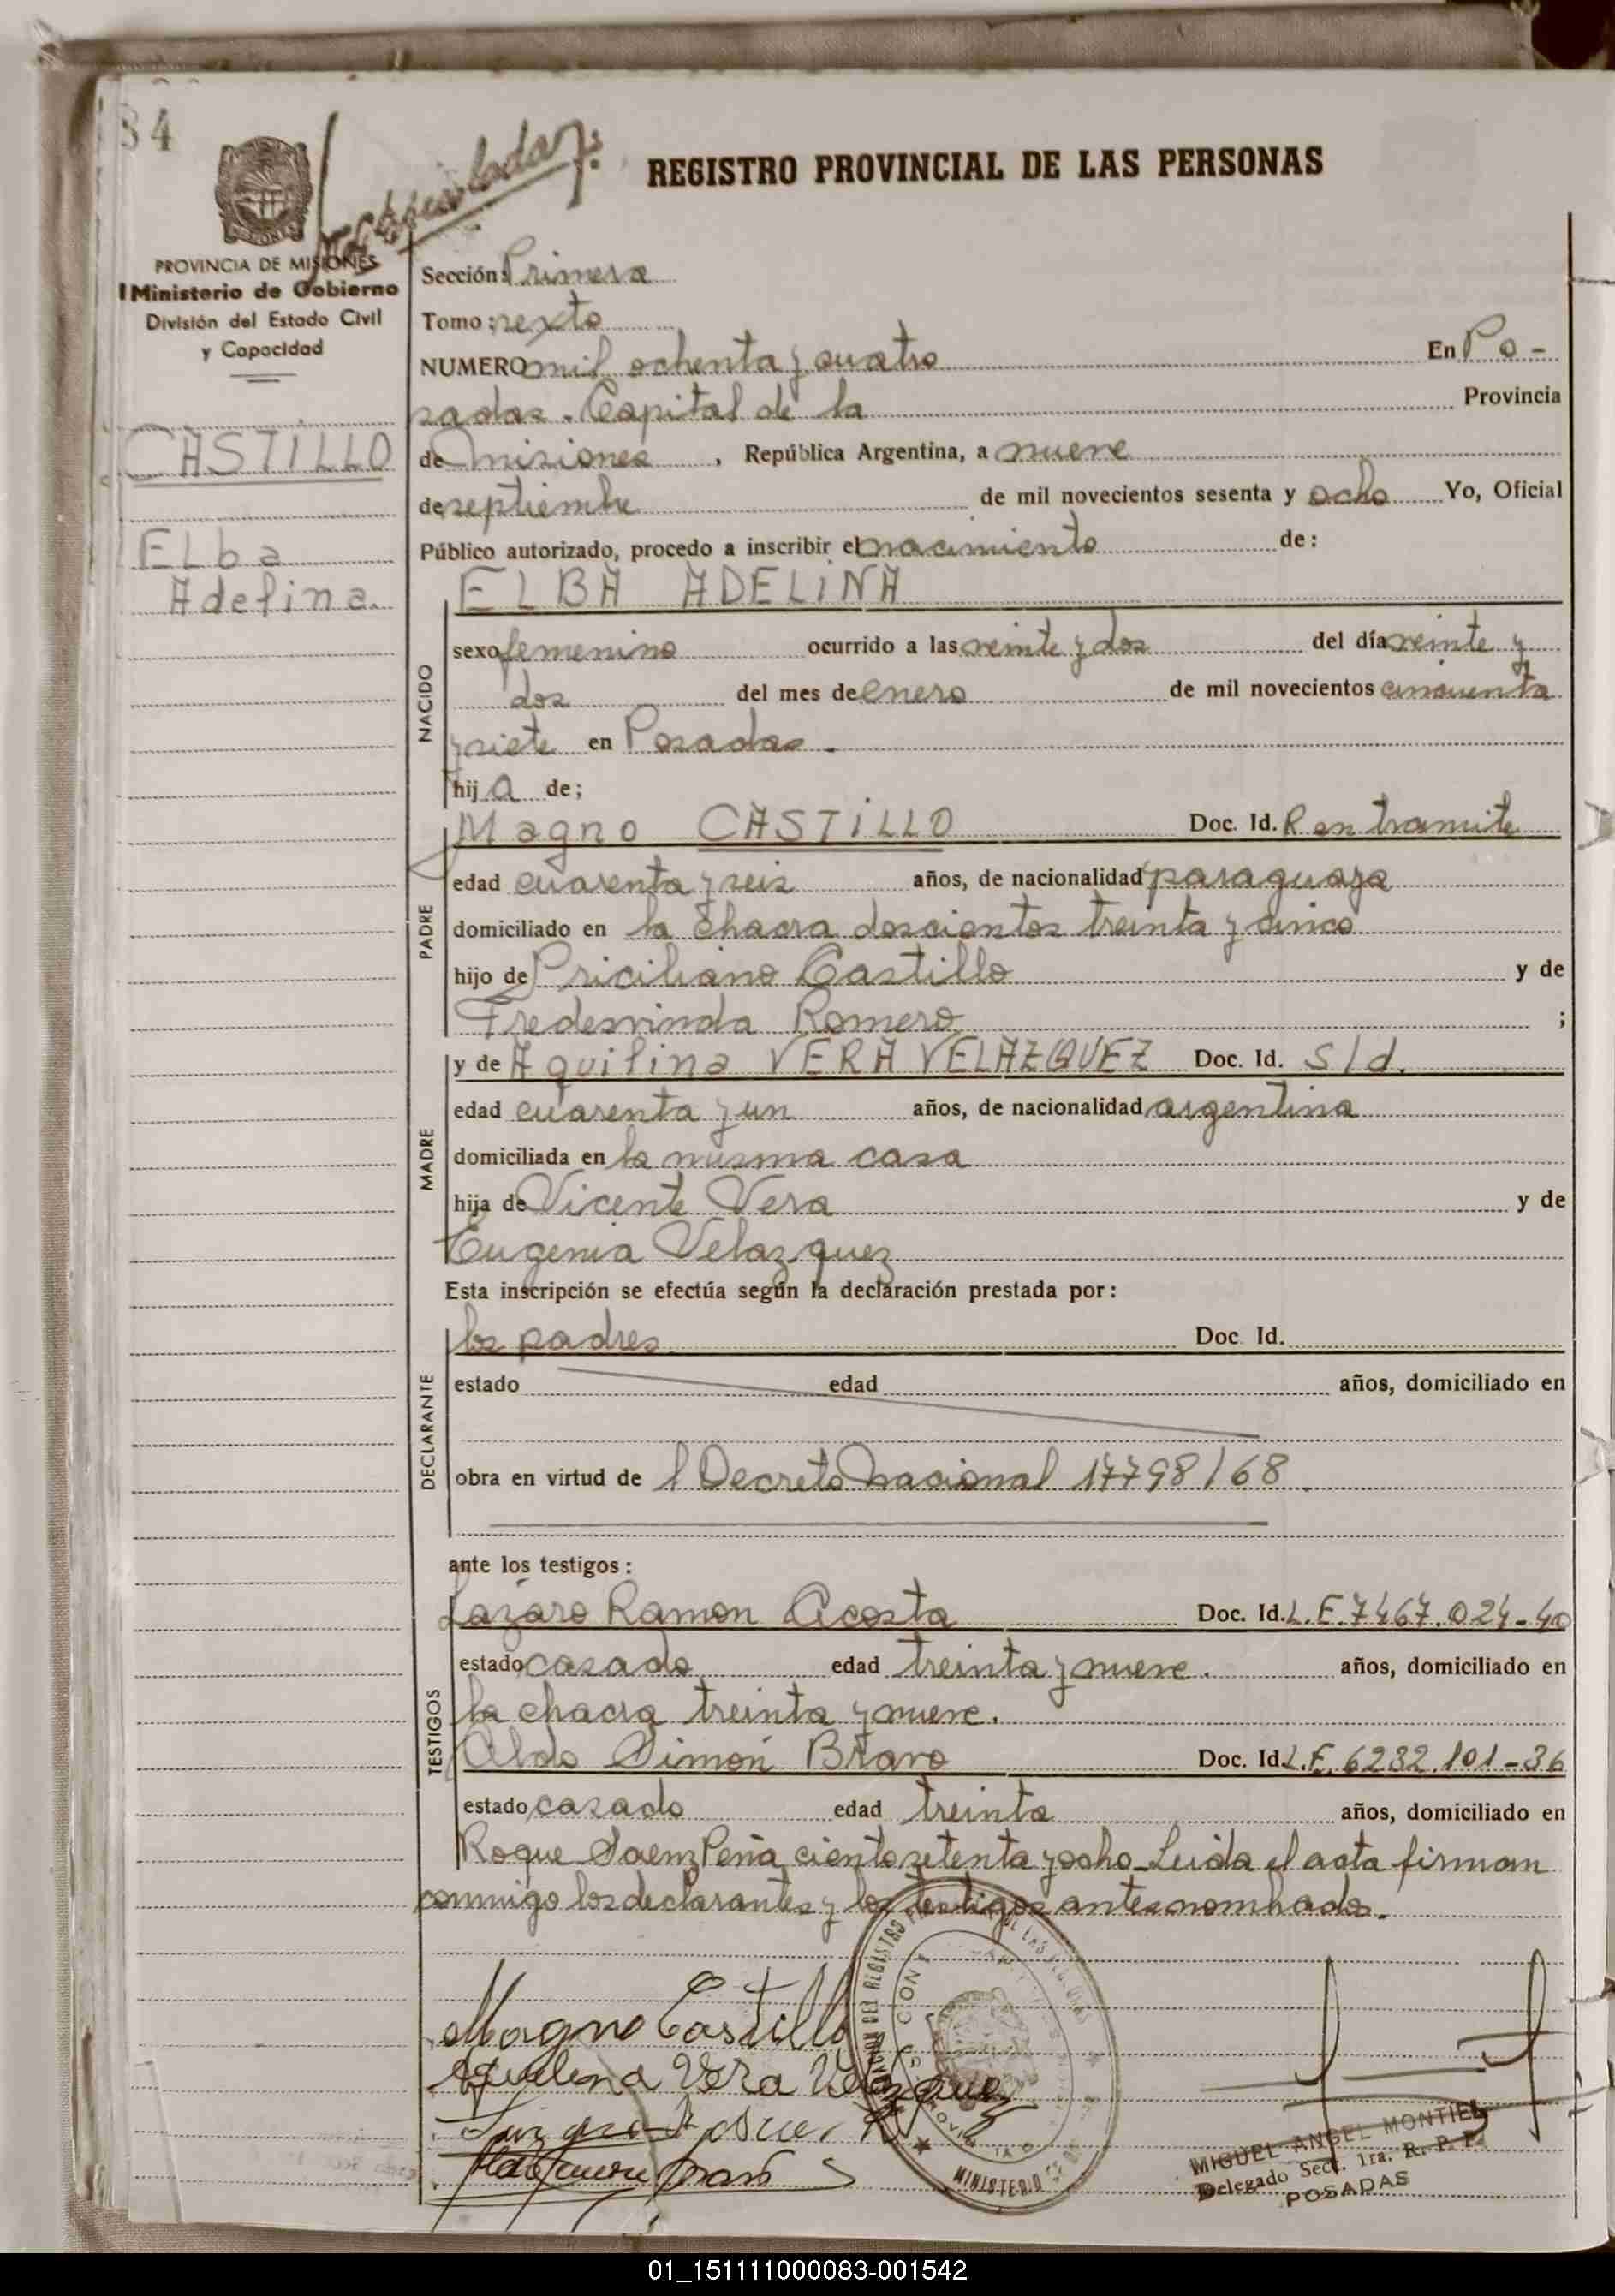 84
REGISTRO PROVINCIAL DE LAS PERSONAS
PROVINCIA DE MISIONES
Ministerio de Gobierno
División del Estado Civil
y Capacidad
CASTILLO
Elba
Adelina.
Sección: Primera
Tomo: sexto
NUMERO mil ochenta y cuatro En Po-
sadas. Capital de la Provincia
de Misiones, República Argentina, a nueve
de septiembre de mil novecientos sesenta y ocho Yo, Oficial
Público autorizado, procedo a inscribir el nacimiento de:
ELBA ADELINA
NACIDO
sexo femenino ocurrido a las veinte y dos del día veinte y
dos del mes de enero de mil novecientos cincuenta
y siete en Posadas.
hija de;
PADRE
Magno CASTILLO Doc. Id. R en tramite
edad cuarenta y seis años, de nacionalidad paraguaya
domiciliado en la chacra doscientos treinta y cinco
hijo de Priciliano Castillo y de
Fredesvinda Romero ;
MADRE
y de Aquilina VERA VELAZQUEZ Doc. Id. S/d.
edad cuarenta y un años, de nacionalidad argentina
domiciliada en la misma casa
hija de Vicente Vera y de
Eugenia Velazquez
Esta inscripción se efectúa según la declaración prestada por:
DECLARANTE
los padres Doc. Id.
estado edad años, domiciliado en
obra en virtud de l Decreto Nacional 17798/68
ante los testigos:
TESTIGOS
Lazaro Ramon Acosta Doc. Id. L.E. 7467.024-40
estado casado edad treinta y nueve. años, domiciliado en
la chacra treinta y nueve.
Aldo Simón Bravo Doc. Id. L.E. 6232.101-36
estado casado edad treinta años, domiciliado en
Roque Saenz Peña ciento setenta y ocho_Leida el acta firman
conmigo los declarantes y los testigos antes nombrados.
Magno Castillo
Aquilena Vera Velazquez
MINISTERIO
MIGUEL ANGEL MONTIEL
Delegado Secc. 1ra. R. P. P.
POSADAS
01_151111000083-001542